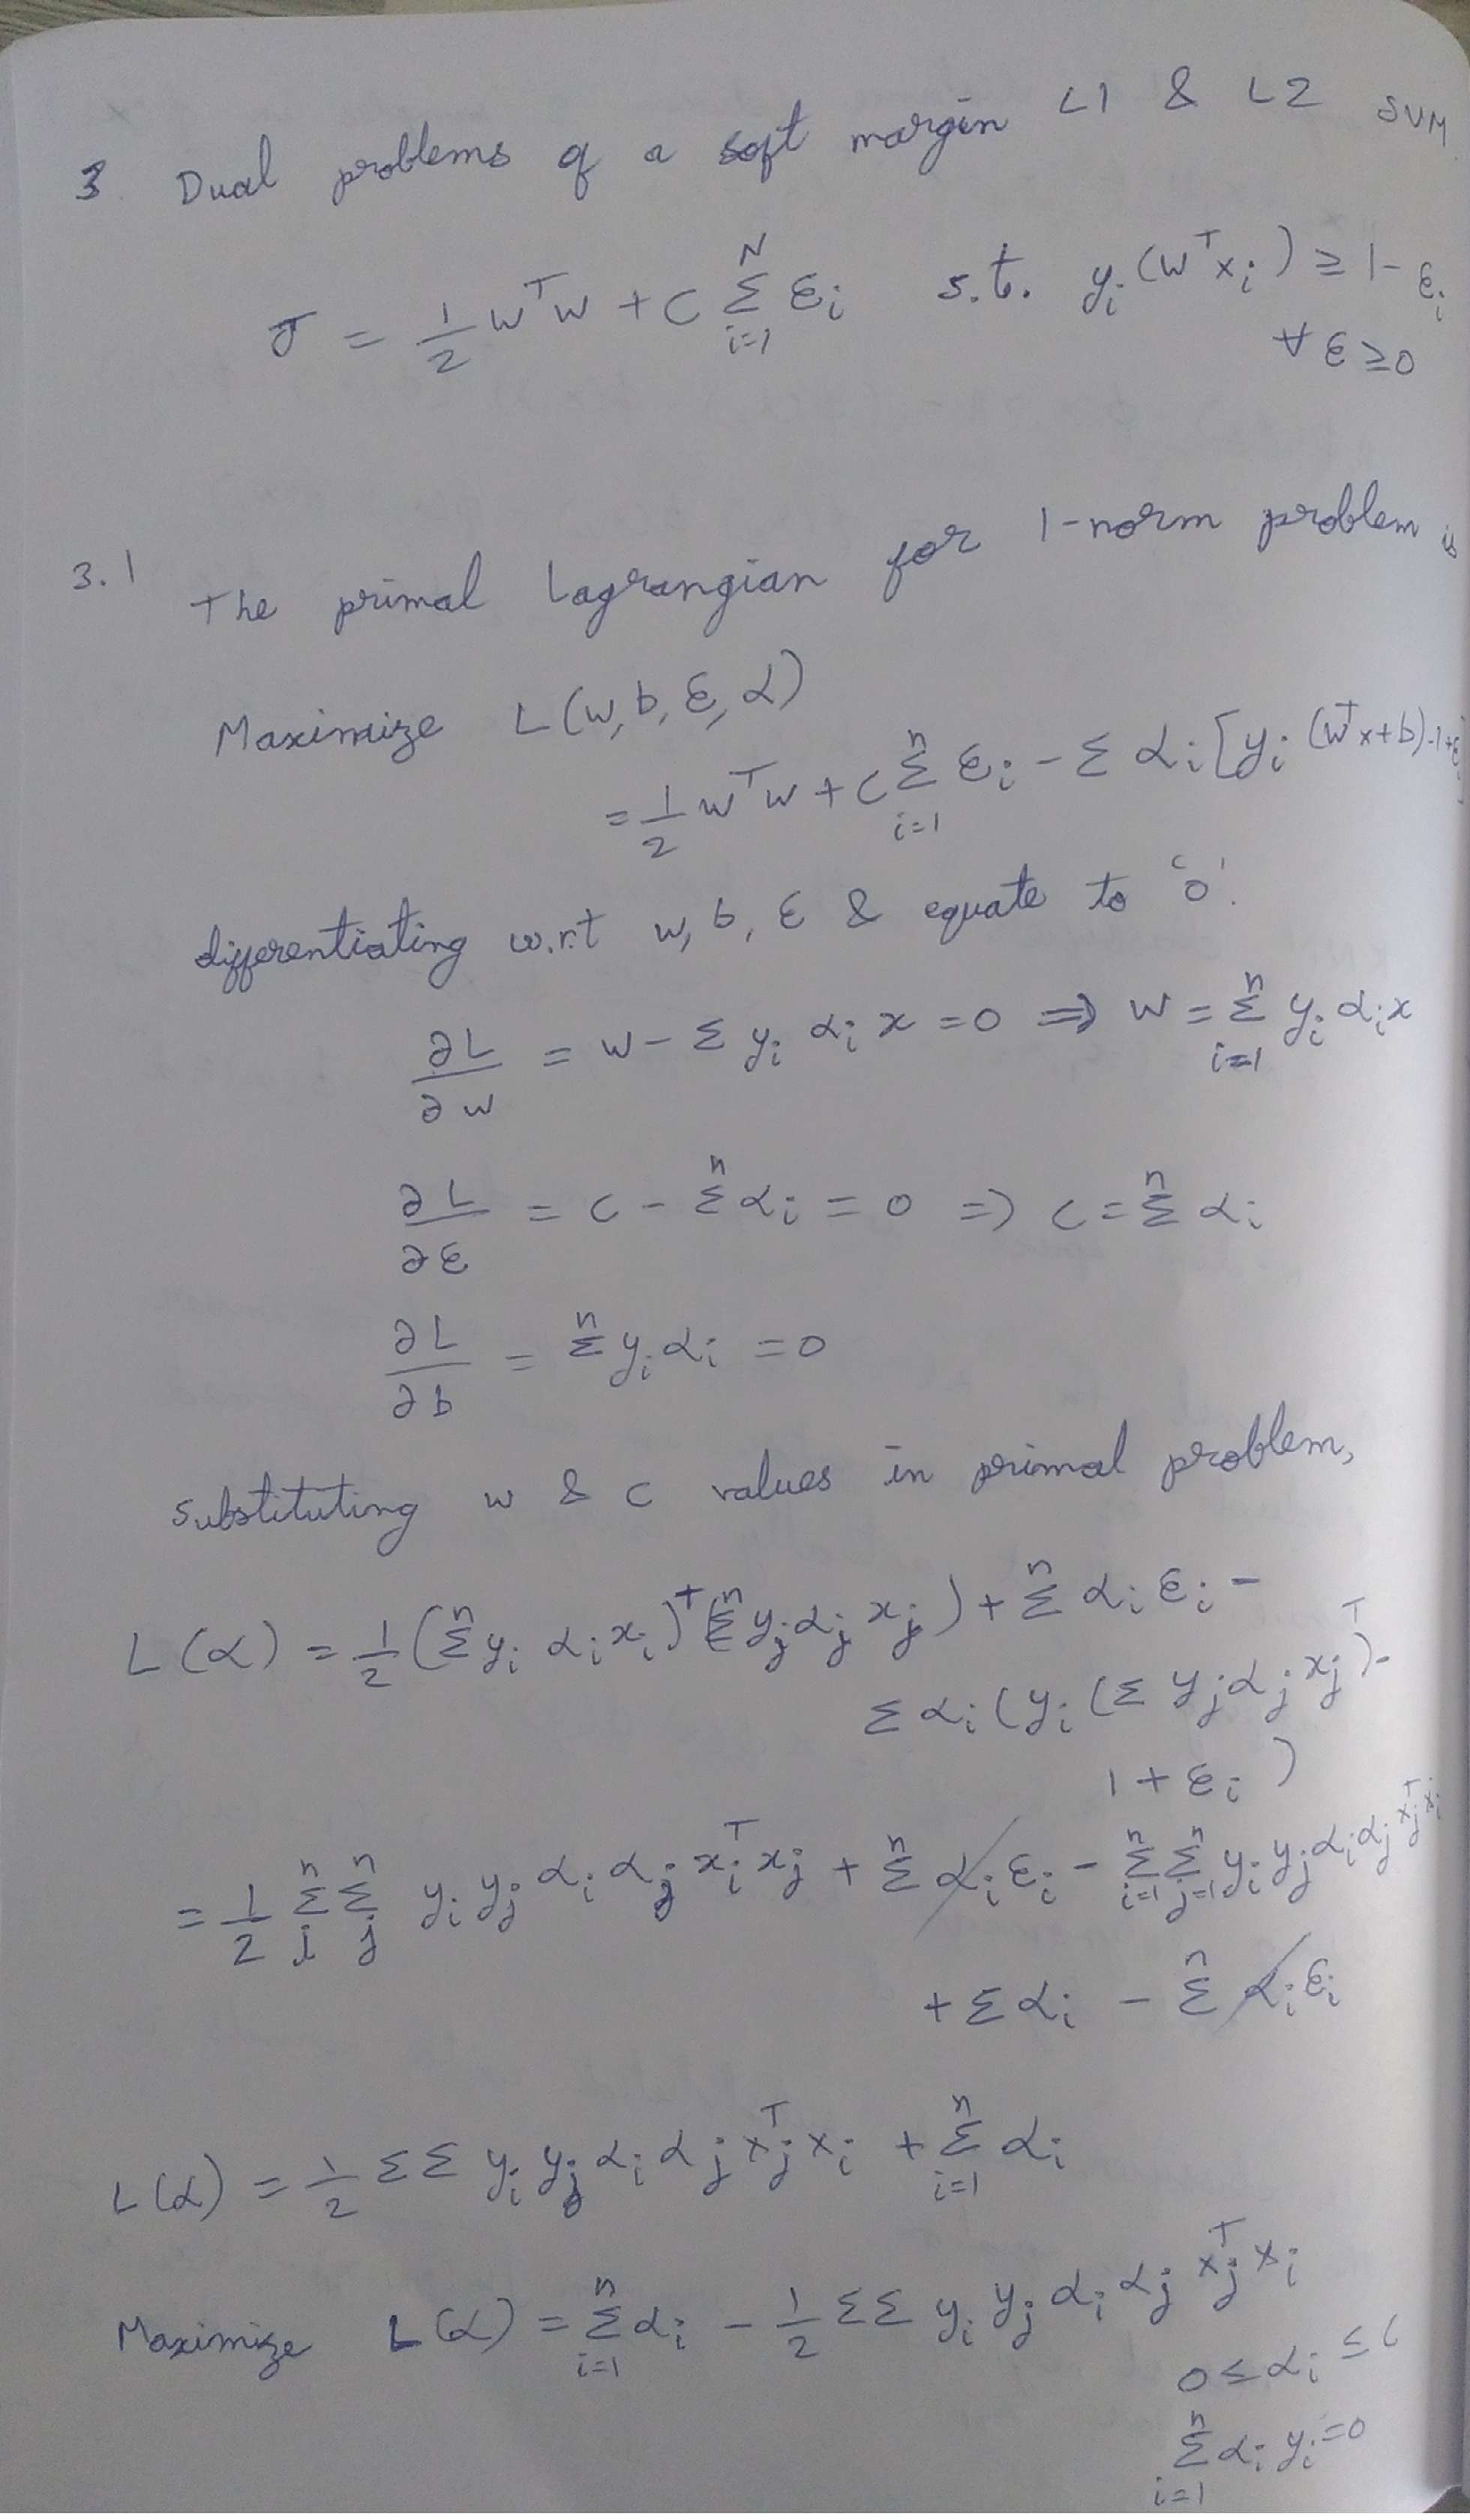 3. Dual problems of a soft margin L1 & L2 SVM
J = 1/2 wᵀw + C Σ_{i=1}^{N} ξi s.t. yi (wᵀxi) ≥ 1 - ξi
∀ ξ ≥ 0
3.1 The primal Lagrangian for 1-norm problem is
Maximize L(w, b, ξ, α)
= 1/2 wᵀw + C Σ_{i=1}^{n} ξi - Σ αi [yi (wᵀx + b) - 1 + ξi]
differentiating w.r.t w, b, ξ & equate to '0'.
∂L/∂w = w - Σ yi αi x = 0 ⇒ w = Σ_{i=1}^{n} yi αi x
∂L/∂ξ = C - Σ^{n} αi = 0 ⇒ C = Σ^{n} αi
∂L/∂b = Σ^{n} yi αi = 0
Substituting w & C values in primal problem,
L(α) = 1/2 (Σ^{n} yi αi xi)ᵀ (Σ^{n} yj αj xj) + Σ^{n} αi ξi -
Σ αi (yi (Σ yj αj xjᵀ) -
1 + ξi)
= 1/2 Σ_{i}^{n} Σ_{j}^{n} yi yj αi αj xiᵀ xj + Σ^{n} αi ξi - Σ_{i=1}^{n} Σ_{j=1}^{n} yi yj αi αj xjᵀ xi
+ Σ αi - Σ^{n} αi ξi
L(α) = 1/2 Σ Σ yi yj αi αj xjᵀ xi + Σ_{i=1}^{n} αi
Maximize L(α) = Σ_{i=1}^{n} αi - 1/2 Σ Σ yi yj αi αj xjᵀ xi
0 ≤ αi ≤ C
Σ_{i=1}^{n} αi yi = 0